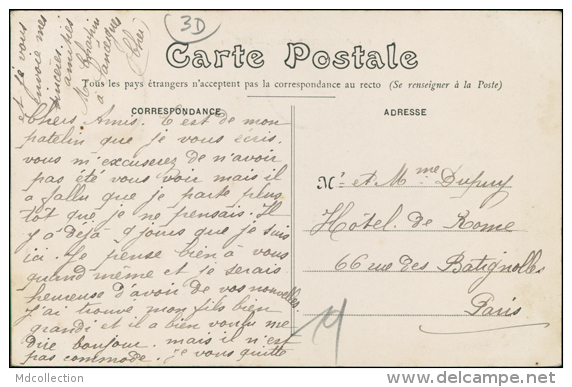 3D
et je vous
envoie mes
sincères
amitiés
M
à
Carte Postale
Tous les pays étrangers n'acceptent pas la correspondance au recto (Se renseigner à la Poste)
CORRESPONDANCE
Chers Amis. C'est de mon
patelin que je vous écris,
vous m'excuserez de n'avoir
pas été vous voir mais il
a fallu que je parte plus
tôt que je ne pensais. Il
y a déjà 9 jours que je suis
ici. Je pense bien à vous
quand même et je serais
heureuse d'avoir de vos nouvelles
j'ai trouvé mon fils bien
grandi et il a bien voulu me
dire bonjour. mais il n'est
pas commode. je vous quitte
ADRESSE
Mr et Mme Dupuy
Hotel de Rome
66 rue des Batignolles
Paris
Mdcollection
www.delcampe.net